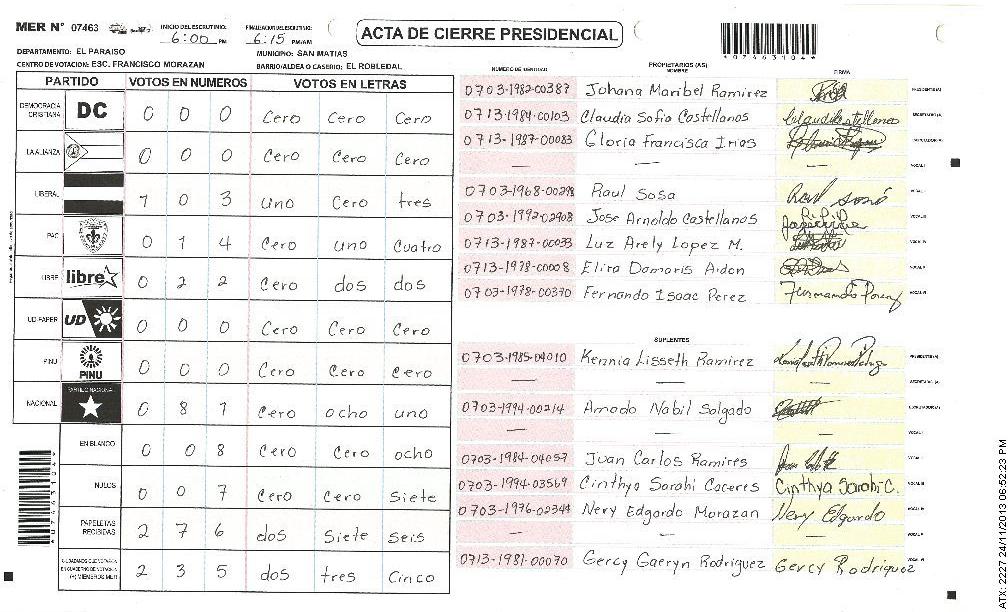 MER N° 07463 INICIO DEL ESCRUTINIO: 6:00 PM FINALIZACION DEL ESCRUTINIO: 6:15 PM/AM
ACTA DE CIERRE PRESIDENCIAL
*07463104*
DEPARTAMENTO: EL PARAISO MUNICIPIO: SAN MATIAS
CENTRO DE VOTACION: ESC. FRANCISCO MORAZAN BARRIO/ALDEA O CASERIO: EL ROBLEDAL
PARTIDO VOTOS EN NUMEROS VOTOS EN LETRAS
DEMOCRACIA CRISTIANA DC 0 0 0 Cero Cero Cero
LA ALIANZA 0 0 0 Cero Cero Cero
LIBERAL 1 0 3 uno Cero tres
PAC 0 1 4 Cero uno Cuatro
LIBRE libre 0 2 2 Cero dos dos
UD-FAPER UD 0 0 0 Cero Cero Cero
PINU PINU 0 0 0 Cero Cero Cero
NACIONAL PARTIDO NACIONAL 0 8 1 Cero ocho uno
EN BLANCO 0 0 8 Cero Cero ocho
NULOS 0 0 7 Cero Cero Siete
PAPELETAS RECIBIDAS 2 7 6 dos Siete seis
2 3 5 dos tres Cinco
NUMERO DE IDENTIDAD PROPIETARIOS (AS) NOMBRE FIRMA
0703-1982-00387 Johana Maribel Ramirez PRESIDENTE(A)
0713-1984-00103 Claudia Sofia Castellanos SECRETARIO(A)
0713-1987-00083 Gloria Francisca Irias ESCRUTADOR(A)
— — — VOCAL I
0703-1968-00298 Raul Sosa VOCAL II
0703-1992-02908 Jose Arnoldo Castellanos VOCAL III
0713-1987-00033 Luz Arely Lopez M. VOCAL IV
0713-1978-00008 VOCAL V
0703-1978-00370 Fernando Isaac Perez VOCAL VI
SUPLENTES
0703-1985-04010 Kennia Lisseth Ramirez PRESIDENTE(A)
— — SECRETARIO (A)
0703-1994-00214 Amado Nabil Salgado ESCRUTADOR(A)
— — VOCAL I
0703-1984-04057 Juan Carlos Ramires VOCAL II
0703-1994-03569 Cinthya Sarahi Caceres Cinthya Sarahi C. VOCAL III
0703-1976-02344 Nery Edgardo Morazan Nery Edgardo VOCAL IV
— — VOCAL V
0713-1981-00070 Gercy Gaeryn Rodriguez Gercy Rodriguez VOCAL VI
*07463104*
ATX: 2227 24/11/2013 06:52:23 PM